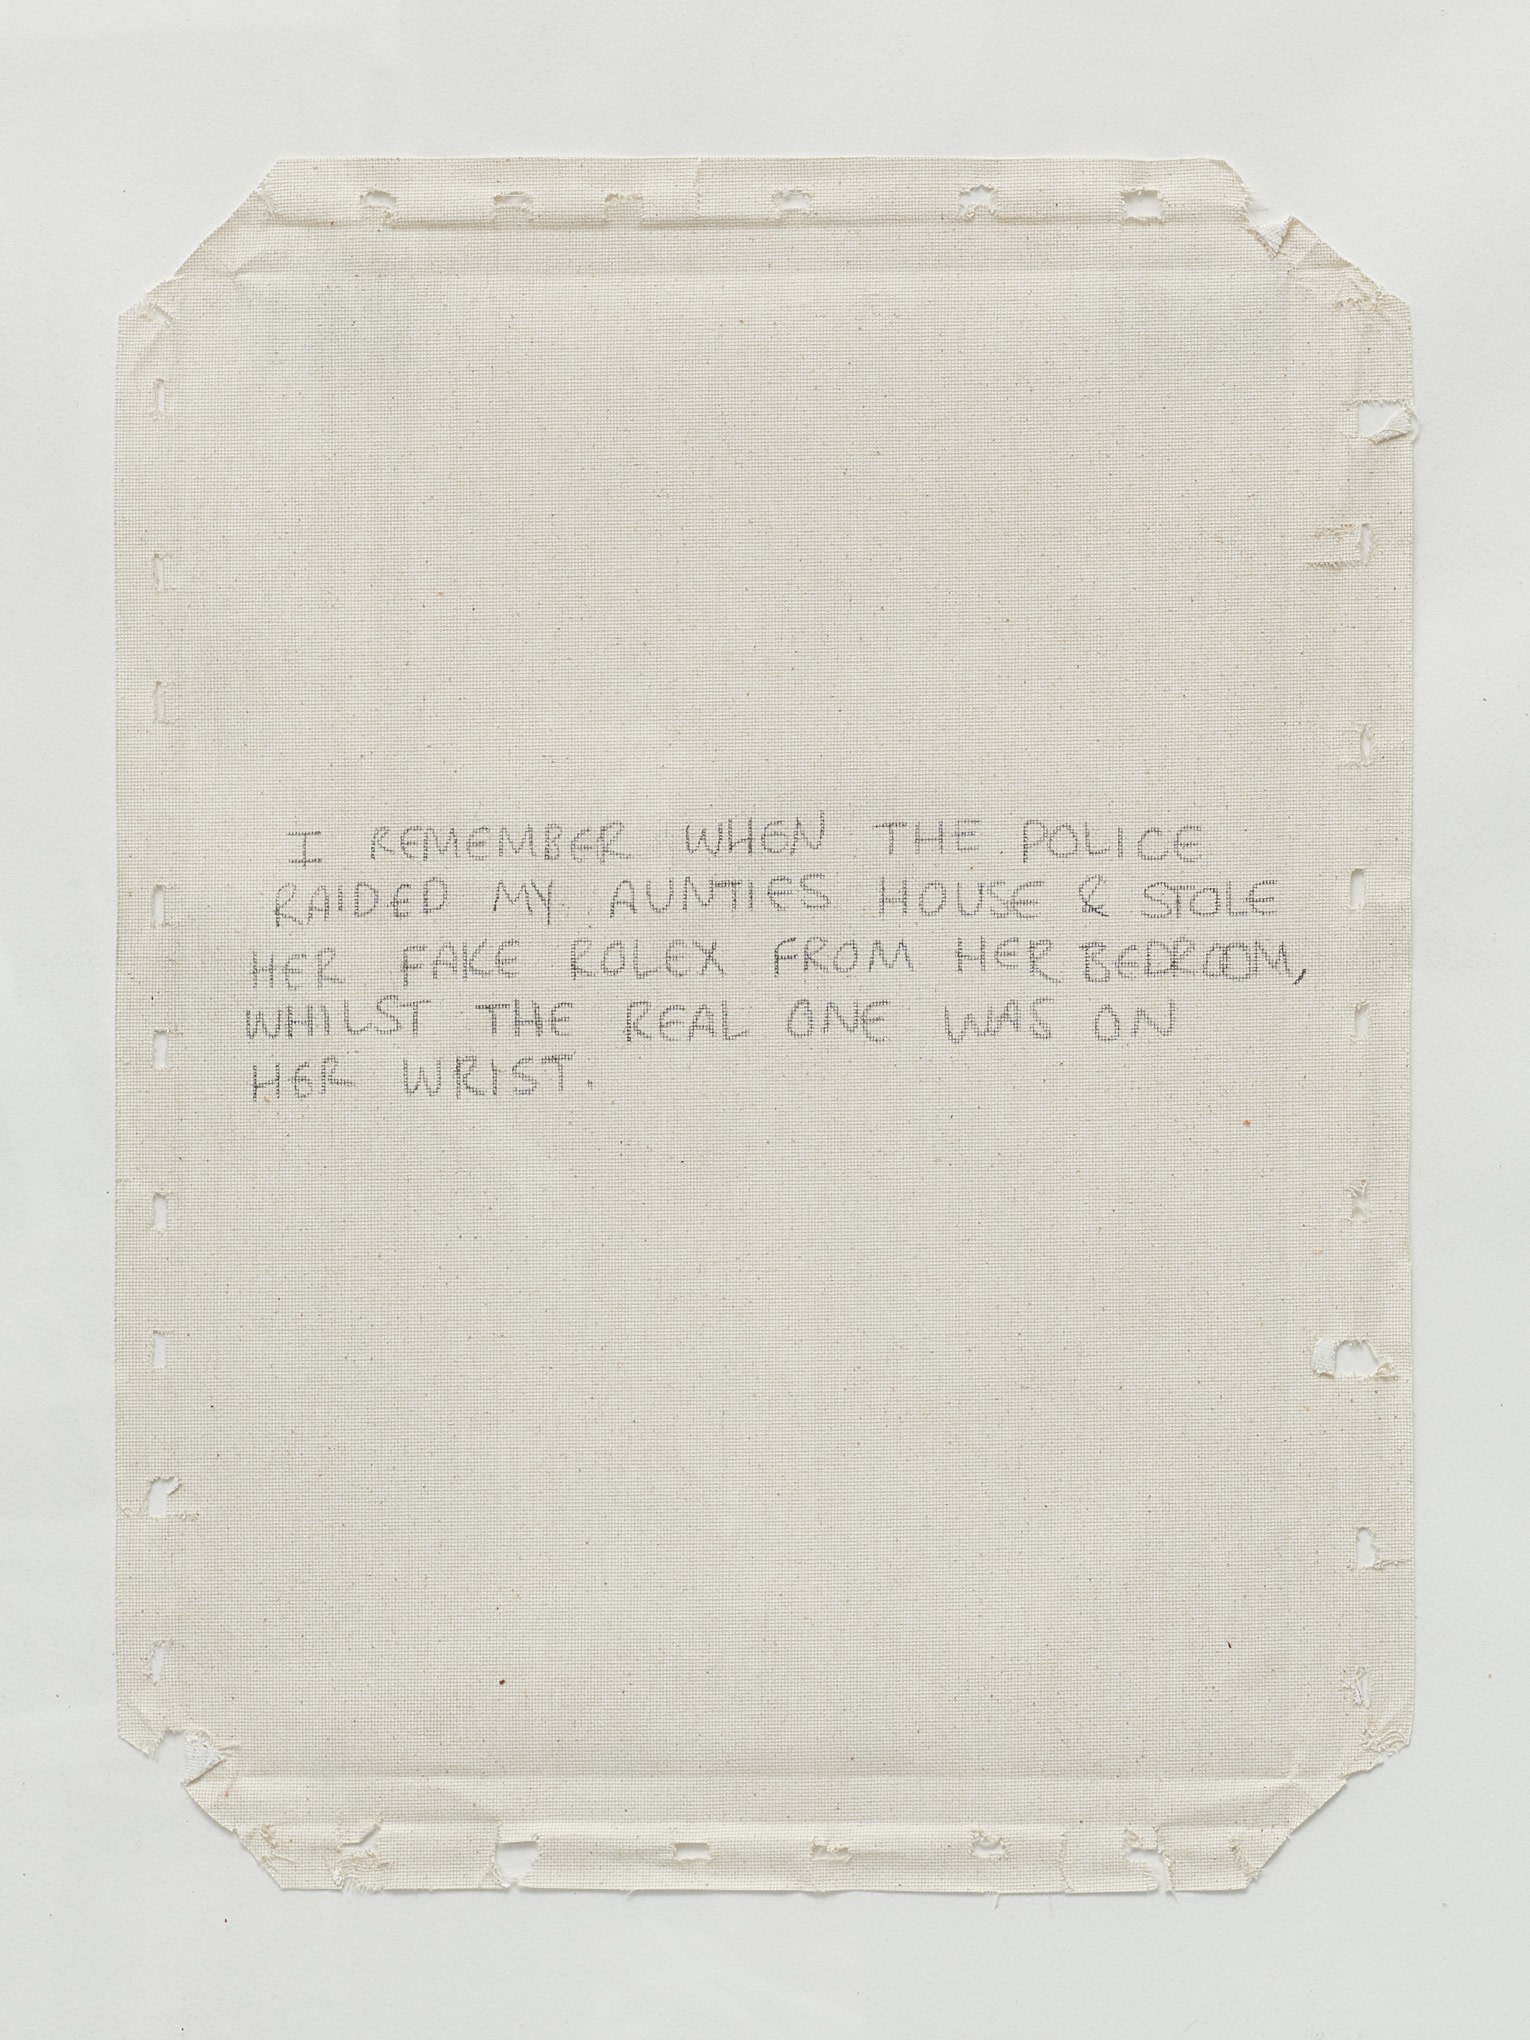 I REMEMBER WHEN THE POLICE
RAIDED MY AUNTIES HOUSE & STOLE
HER FAKE ROLEX FROM HER BEDROOM,
WHILST THE REAL ONE WAS ON
HER WRIST.